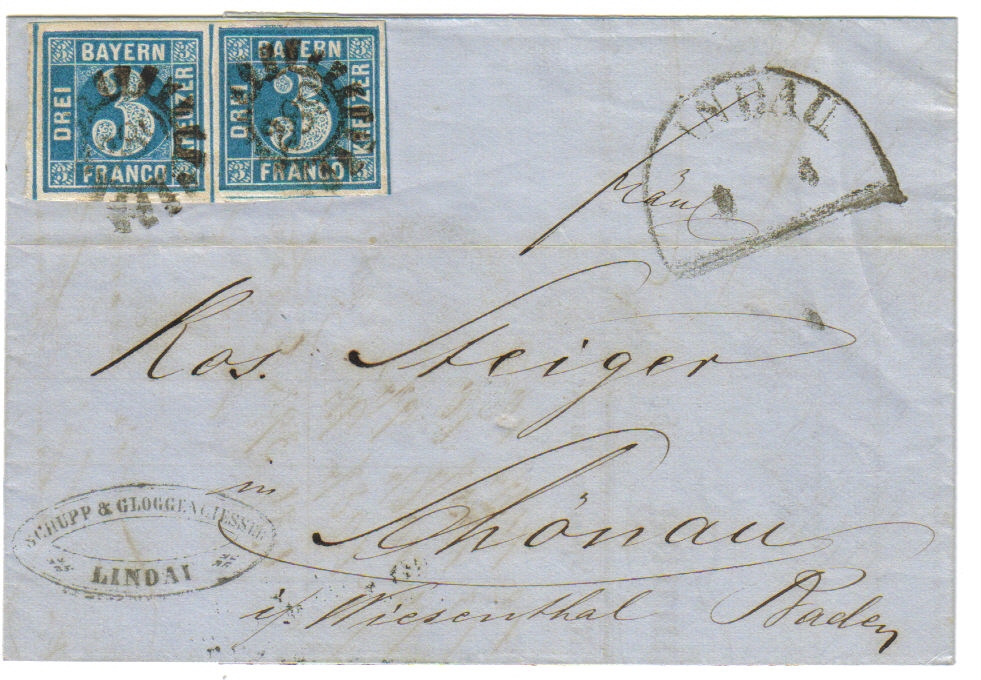 3 BAYERN 3
DREI 3 KREUZER
3 FRANCO
3 BAYERN
DREI 3 KREUZER
3 FRANCO 3
INDAU
fränco
Ros. Steiger
in
Schönau
i/. Wiesenthal Baden
SCHUPP & GLOGGENGIESSER
LINDAU